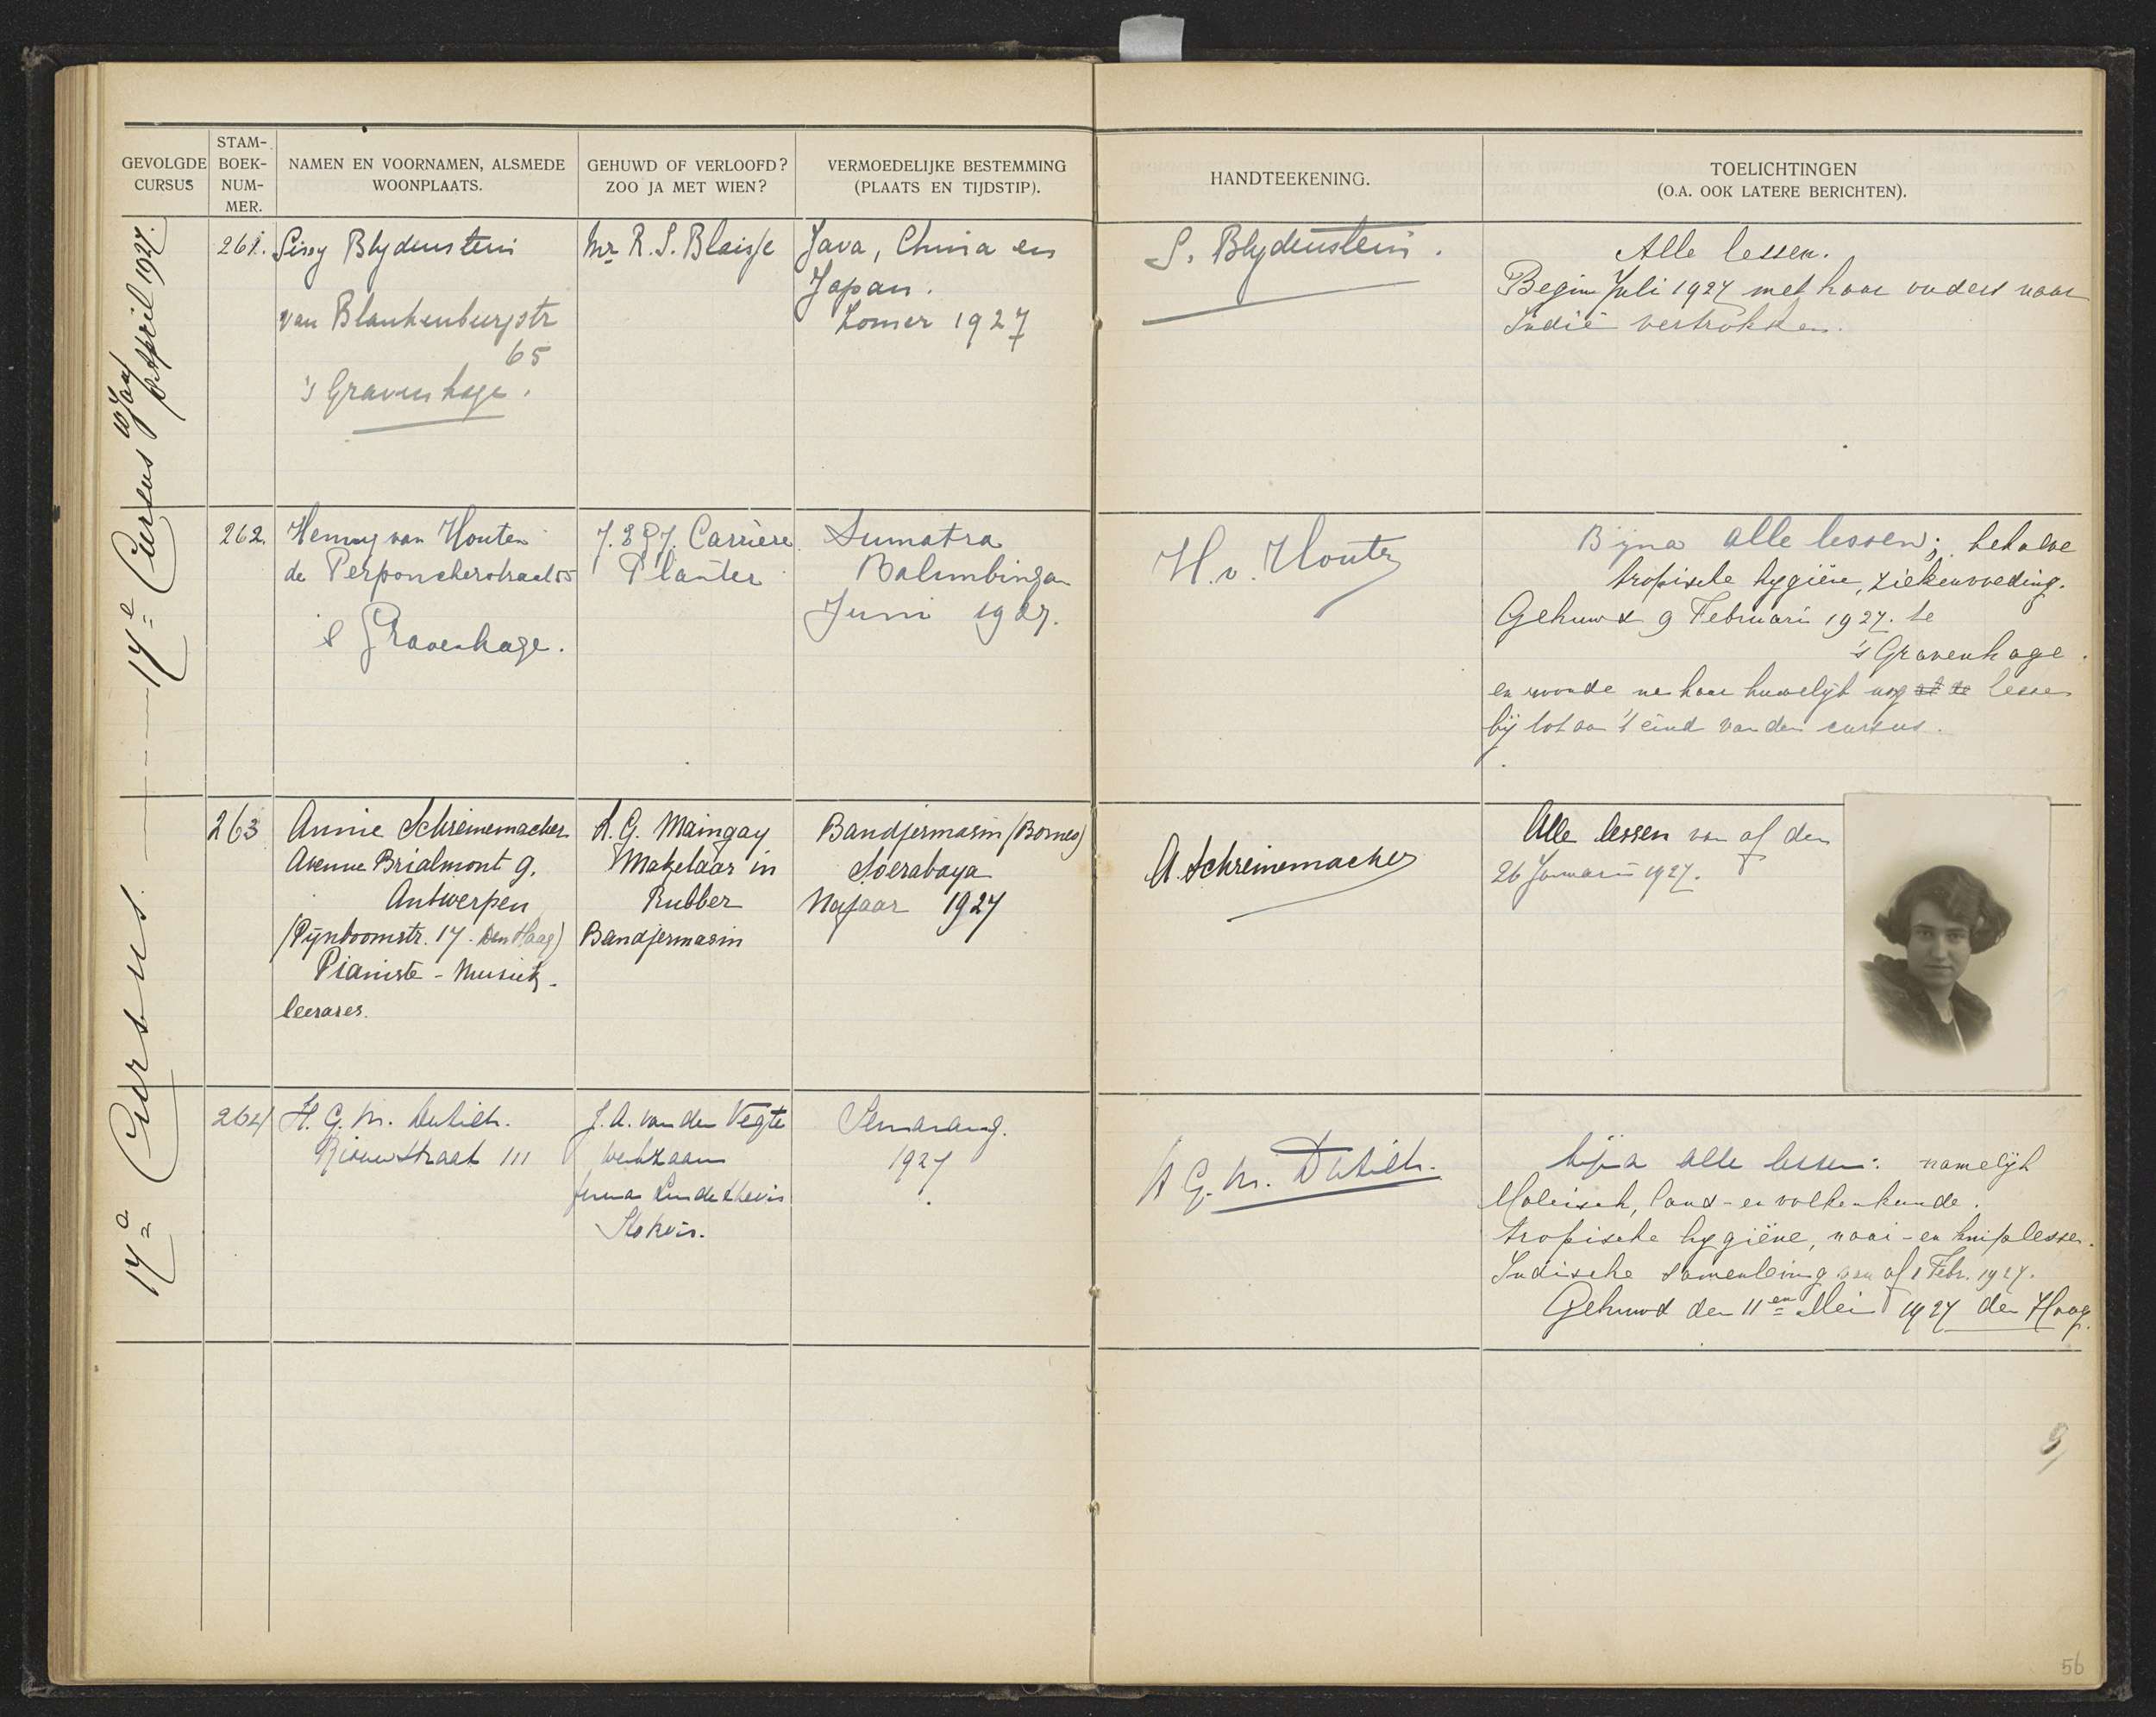 GEVOLGDE CURSUS
STAM-BOEK-NUM-MER.
NAMEN EN VOORNAMEN, ALSMEDE WOONPLAATS.
GEHUWD OF VERLOOFD? ZOO JA MET WIEN?
VERMOEDELIJKE BESTEMMING (PLAATS EN TIJDSTIP).
HANDTEEKENING.
TOELICHTINGEN (O.A. OOK LATERE BERICHTEN).
17e Cursus
April 1927.
261. Sissy Blydenstein
van Blankenburgstr
65
's Gravenhage.
Mr R. S. Blaisse
Java, China en
Japan.
Zomer 1927
S. Blydenstein.
Alle lessen.
Begin Juli 1927 met haar ouders naar
Indië vertrokken.
262. Henny van Houten
de Perponcherstraat 55
's Gravenhage.
Carrière
Planter
Sumatra
Balimbingan
Juni 1927.
H. v. Houten
Bijna alle lessen; behalve
tropische hygiëne, ziekenvoeding.
Gehuwd 9 Februari 1927. te
's Gravenhage.
en woonde na haar huwelijk nog lessen
bij tot aan 't eind van den cursus.
17e Cursus.
263 Annie Schreinemacher
Avenue Brialmont 9.
Antwerpen
(Pynboomstr. 17. Den Haag)
Pianiste - Musiek-
leerares.
A. G. Maingay
Makelaar in
Rubber
Bandjermasin
Bandjermasin (Borneo)
Soerabaya
Najaar 1927
A. Schreinemacher
Alle lessen van af den
26 Januari 1927.
264 H. G. M. Dutilh.
Riouwstraat 111
J. A. van der Vegte
werkzaam
firma Lindeteves
Stokvis.
Semarang.
1927
H G. M. Dutilh.
bijna alle lessen: namelijk
Maleisch, land- en volkenkunde.
tropische hygiëne, naai- en kniplessen.
Indische samenleving van af 1 Febr. 1927.
Gehuwd den 11en Mei 1927 den Haag.
56